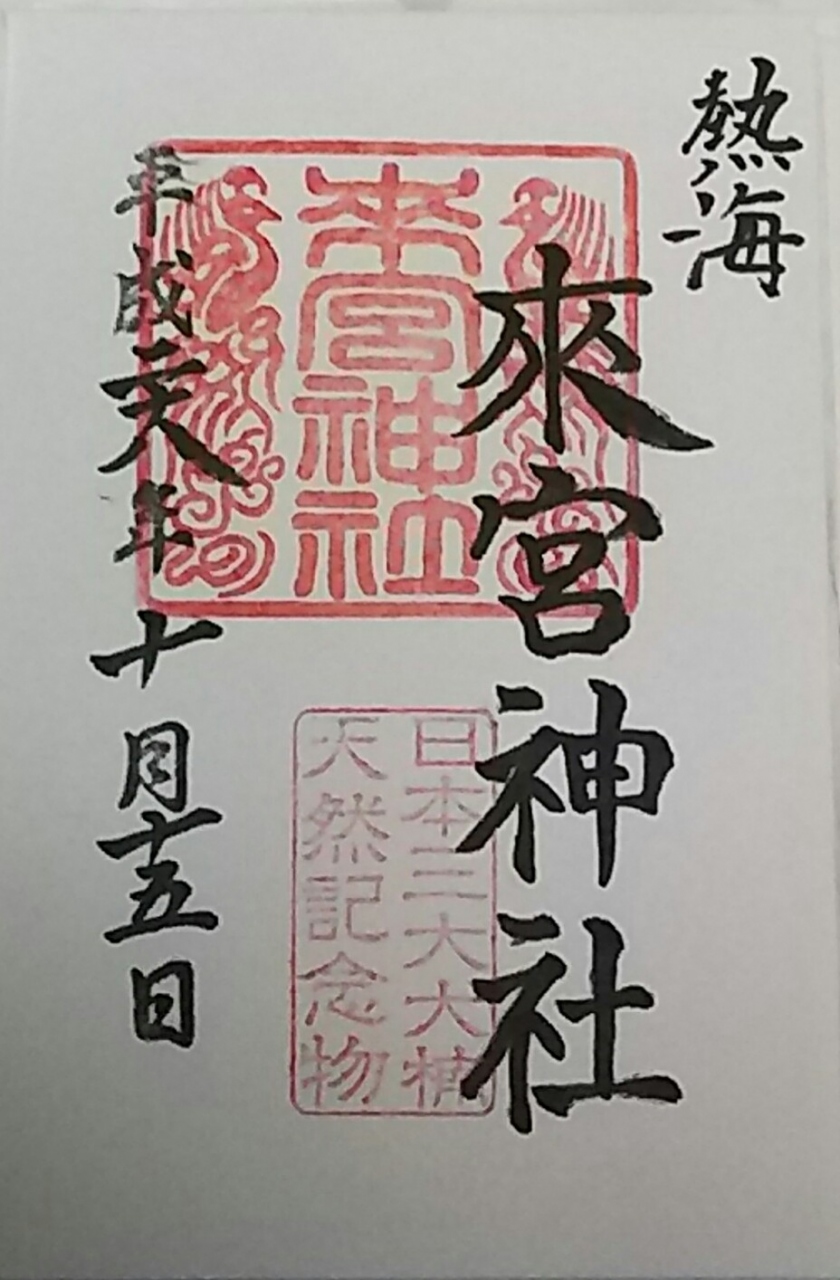 熱海
來宮神社
來宮神社
日本三大大楠
天然記念物
平成二十八年十月十五日